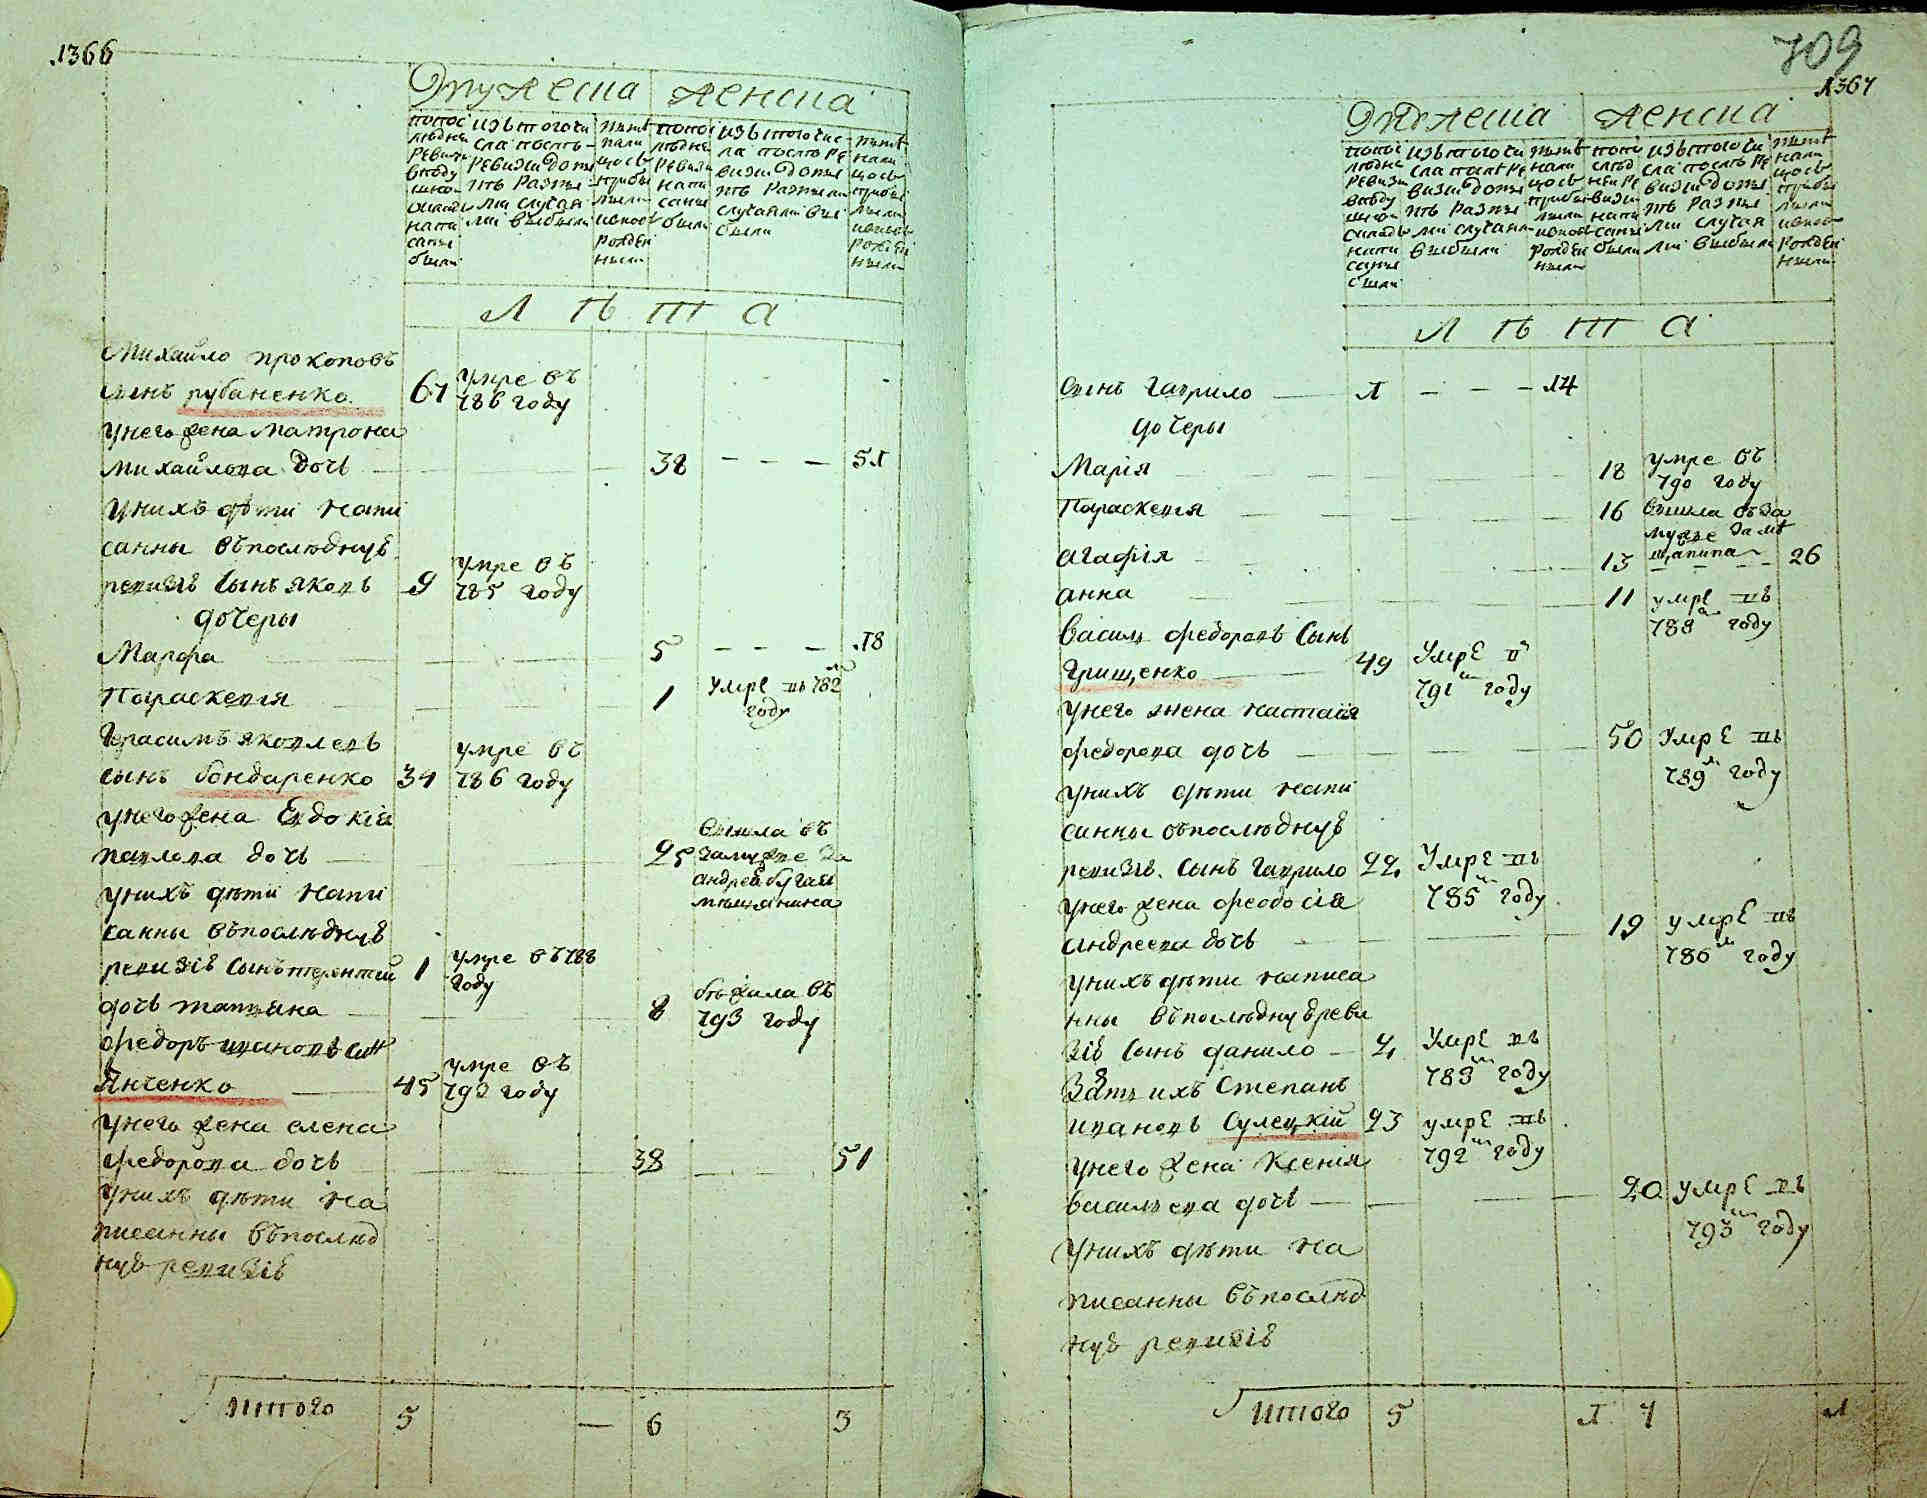 1366
Мужеска Женска
попос
ледне
ревизи
въоду
шнои
сказкѣ
напи
саны
были
изъ того чи
сла послѣ
ревизи допи
тѣ разны
ми случая
ми выбыли
нынѣ
нали
цось
прибы
лыми
иновь
рожден
ными
попос
ледне
ревизи
напи
саны
были
изъ того чис
ла послѣ ре
визи допи
тѣ разными
случаями вы
были
нынѣ
нали
цось
прибы
лыми
иновь
рожден
ными
Л Ѣ Т А
Михайло прокоповъ
сынъ рубаненко 67 умре въ
786 году
унего жена матрона
михайлова дочь 38 51
унихъ дѣти напи
санны въпослѣднуѣ
ревизіѣ сынъ яковъ 9 умре въ
785 году
дочеры
Марфа 5 18
Параскевія 1 умре въ 782м
году
Герасимъ яковлевъ
сынъ бондаренко 34 умре въ
786 году
унего жена Евдокія
павлова дочь 25 вышла въ
замуже за
андрея бугая
мещанина
унихъ дѣти напи
санны въпослѣднуѣ
ревизіѣ сынъ терентій 1 умре въ 788
году
дочь татяна 8 бѣжала въ
793 году
федоръ ивановъ сын
Янченко 45 умре въ
792 году
унего жена елена
федорова дочь 38 51
унихъ дѣти на
писанны въпослѣд
нуѣ ревизіѣ
итого 5 6 3
709
1367
Мужеска Женска
попос
ледне
ревизи
въоду
шнои
сказкѣ
напи
саны
были
изъ того чи
сла послѣ ре
визи допи
тѣ разны
ми случаи
ми выбыли
нынѣ
нали
цось
прибы
лыми
иновь
рожден
ными
попо
слѣд
неи ре
визи
напи
саны
были
изъ того чи
сла послѣ ре
визи допи
тѣ разны
ми случая
ми выбыли
нынѣ
нали
цось
прибы
лыми
иновь
рожден
ными
Л Ѣ Т А
сынъ гаврило 1 14
дочеры
Марія 18 умре въ
790 году
Параскевія 16 вышла въ за
муже за мѣ
щанина
агафія 13 26
анна 11 умре въ
788м году
Василь федоровъ сынъ
Грищенко 49 умре в
791м году
унего жена настасія
федорова дочь 50 умре въ
789м году
унихъ дѣти напи
санны въпослѣднуѣ
ревизіѣ сынъ гаврило 22 умре въ
785м году
унего жена феодосія
андреева дочь 19 умре въ
786м году
унихъ дѣти написа
нны въпослѣднуѣ реви
зіѣ сынъ данило 2 умре въ
783м году
Зять ихъ Степанъ
ивановъ Сулецкій 23 умре въ
792м году
унего жена Ксенія
васильева дочь 20 умре въ
793м году
унихъ дѣти на
писанны въпослѣд
нуѣ ревизіѣ
итого 5 1 7 1